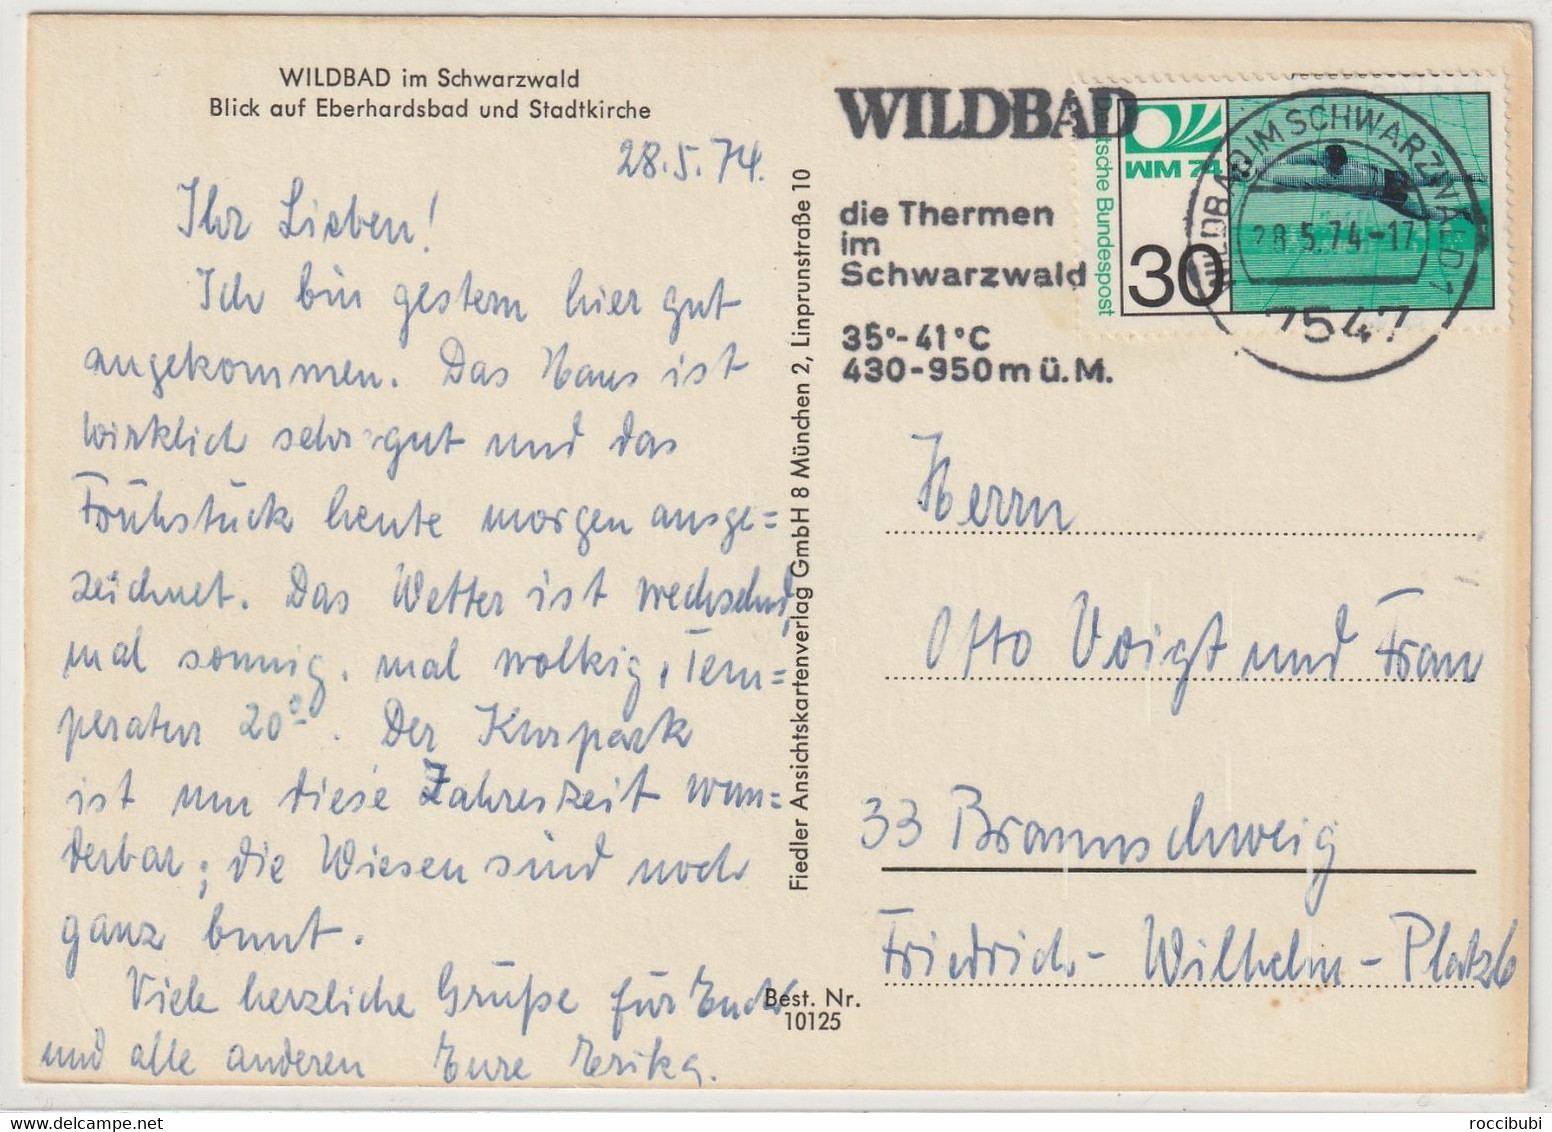 WILDBAD im Schwarzwald
Blick auf Eberhardsbad und Stadtkirche
28.5.74.
Ihr Lieben!
Ich bin gestern hier gut
angekommen. Das Haus ist
wirklich sehr gut und das
Frühstück heute morgen ausge=
zeichnet. Das Wetter ist wechselnd,
mal sonnig, mal wolkig, Tem=
peratur 20°. Der Kurpark
ist um diese Jahreszeit wun=
derbar; die Wiesen sind noch
ganz bunt.
Viele herzliche Grüße für Euch
und alle anderen Eure Erika.
Fiedler Ansichtskartenverlag GmbH 8 München 2, Linprunstraße 10
Best. Nr.
10125
WILDBAD
die Thermen
im
Schwarzwald
35°-41°C
430-950m ü.M.
Deutsche Bundespost
WM 74
30
WILDBAD IM SCHWARZWALD 1
28.5.74-17
7547
Herrn
Otto Voigt und Frau
33 Braunschweig
Friedrich-Wilhelm-Platz 6
roccibubi